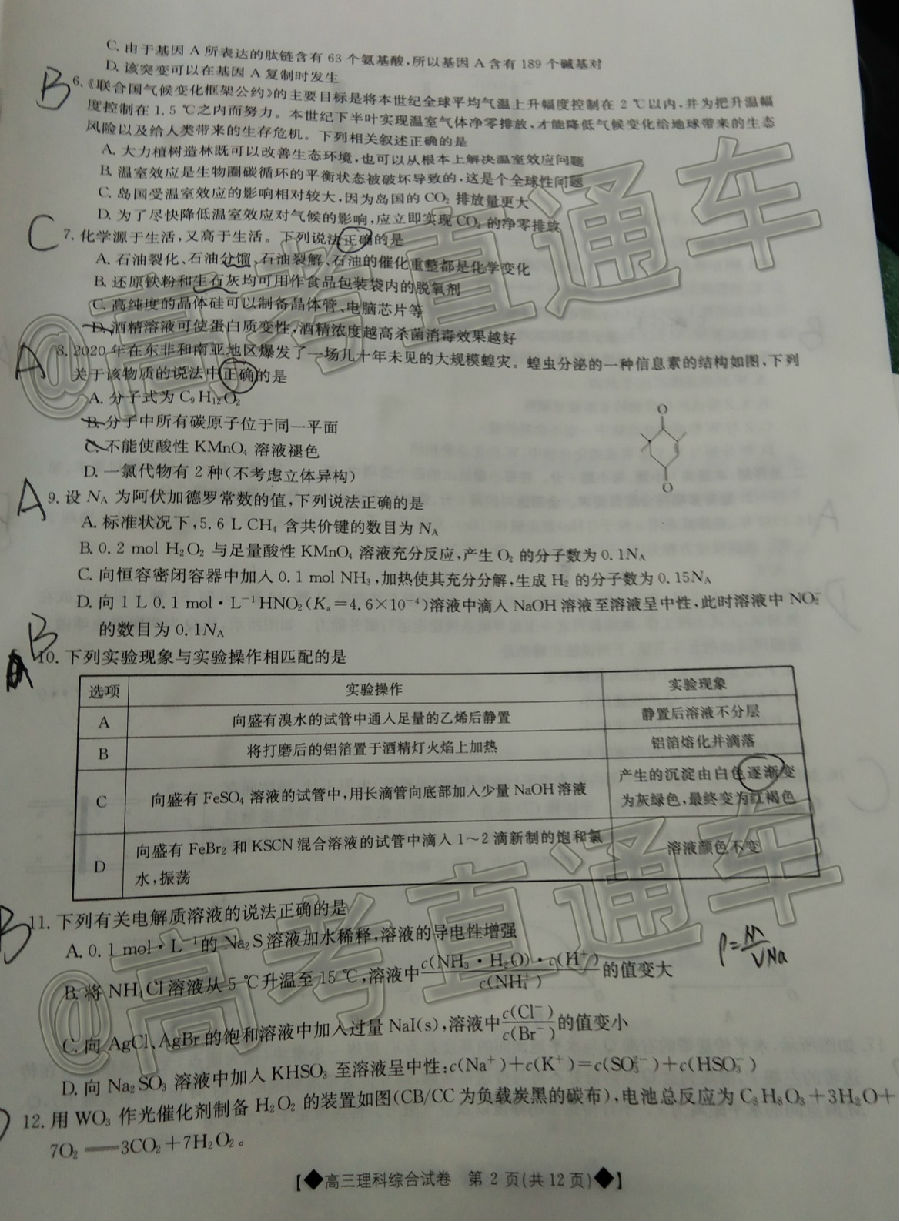 C. 由于基因 A 所表达的肽链含有 63 个氨基酸,所以基因 A 含有 189 个碱基对
D. 该突变可以在基因 A 复制时发生
B
6.《联合国气候变化框架公约》的主要目标是将本世纪全球平均气温上升幅度控制在 2 ℃以内,并为把升温幅
度控制在 1.5 ℃之内而努力。本世纪下半叶实现温室气体净零排放,才能降低气候变化给地球带来的生态
风险以及给人类带来的生存危机。下列相关叙述正确的是
A. 大力植树造林既可以改善生态环境,也可以从根本上解决温室效应问题
B. 温室效应是生物圈碳循环的平衡状态被破坏导致的,这是个全球性问题
C. 岛国受温室效应的影响相对较大,因为岛国的 CO₂ 排放量更大
D. 为了尽快降低温室效应对气候的影响,应立即实现 CO₂ 的净零排放
C
7. 化学源于生活,又高于生活。下列说法正确的是
A. 石油裂化、石油分馏、石油裂解、石油的催化重整都是化学变化
B. 还原铁粉和生石灰均可用作食品包装袋内的脱氧剂
C. 高纯度的晶体硅可以制备晶体管、电脑芯片等
D. 酒精溶液可使蛋白质变性,酒精浓度越高杀菌消毒效果越好
A
8. 2020 年在东非和南亚地区爆发了一场几十年未见的大规模蝗灾。蝗虫分泌的一种信息素的结构如图,下列
关于该物质的说法中正确的是
A. 分子式为 C₉H₁₂O₂
B. 分子中所有碳原子位于同一平面
C. 不能使酸性 KMnO₄ 溶液褪色
D. 一氯代物有 2 种(不考虑立体异构)
O
O
A
9. 设 Nᴀ 为阿伏加德罗常数的值,下列说法正确的是
A. 标准状况下,5.6 L CH₄ 含共价键的数目为 Nᴀ
B. 0.2 mol H₂O₂ 与足量酸性 KMnO₄ 溶液充分反应,产生 O₂ 的分子数为 0.1Nᴀ
C. 向恒容密闭容器中加入 0.1 mol NH₃,加热使其充分分解,生成 H₂ 的分子数为 0.15Nᴀ
D. 向 1 L 0.1 mol·L⁻¹HNO₂(Kₐ=4.6×10⁻⁴)溶液中滴入 NaOH 溶液至溶液呈中性,此时溶液中 NO₂⁻
的数目为 0.1Nᴀ
B
10. 下列实验现象与实验操作相匹配的是
选项 实验操作 实验现象
A 向盛有溴水的试管中通入足量的乙烯后静置 静置后溶液不分层
B 将打磨后的铝箔置于酒精灯火焰上加热 铝箔熔化并滴落
C 向盛有 FeSO₄ 溶液的试管中,用长滴管向底部加入少量 NaOH 溶液 产生的沉淀由白色逐渐变
为灰绿色,最终变为红褐色
D 向盛有 FeBr₂ 和 KSCN 混合溶液的试管中滴入 1～2 滴新制的饱和氯
水,振荡 溶液颜色不变
B
11. 下列有关电解质溶液的说法正确的是
A. 0.1 mol·L⁻¹的 Na₂S 溶液加水稀释,溶液的导电性增强
ρ=M/VNa
B. 将 NH₄Cl 溶液从 5 ℃升温至 15 ℃,溶液中c(NH₃·H₂O)·c(H⁺)/c(NH₄⁺)的值变大
C. 向 AgCl、AgBr 的饱和溶液中加入过量 NaI(s),溶液中c(Cl⁻)/c(Br⁻)的值变小
D. 向 Na₂SO₃ 溶液中加入 KHSO₃ 至溶液呈中性:c(Na⁺)+c(K⁺)=c(SO₃²⁻)+c(HSO₃⁻)
12. 用 WO₃ 作光催化剂制备 H₂O₂ 的装置如图(CB/CC 为负载炭黑的碳布),电池总反应为 C₃H₈O₃+3H₂O+
7O₂══3CO₂+7H₂O₂。
【◆高三理科综合试卷 第 2 页(共 12 页)◆】
@高考直通车
@高考直通车